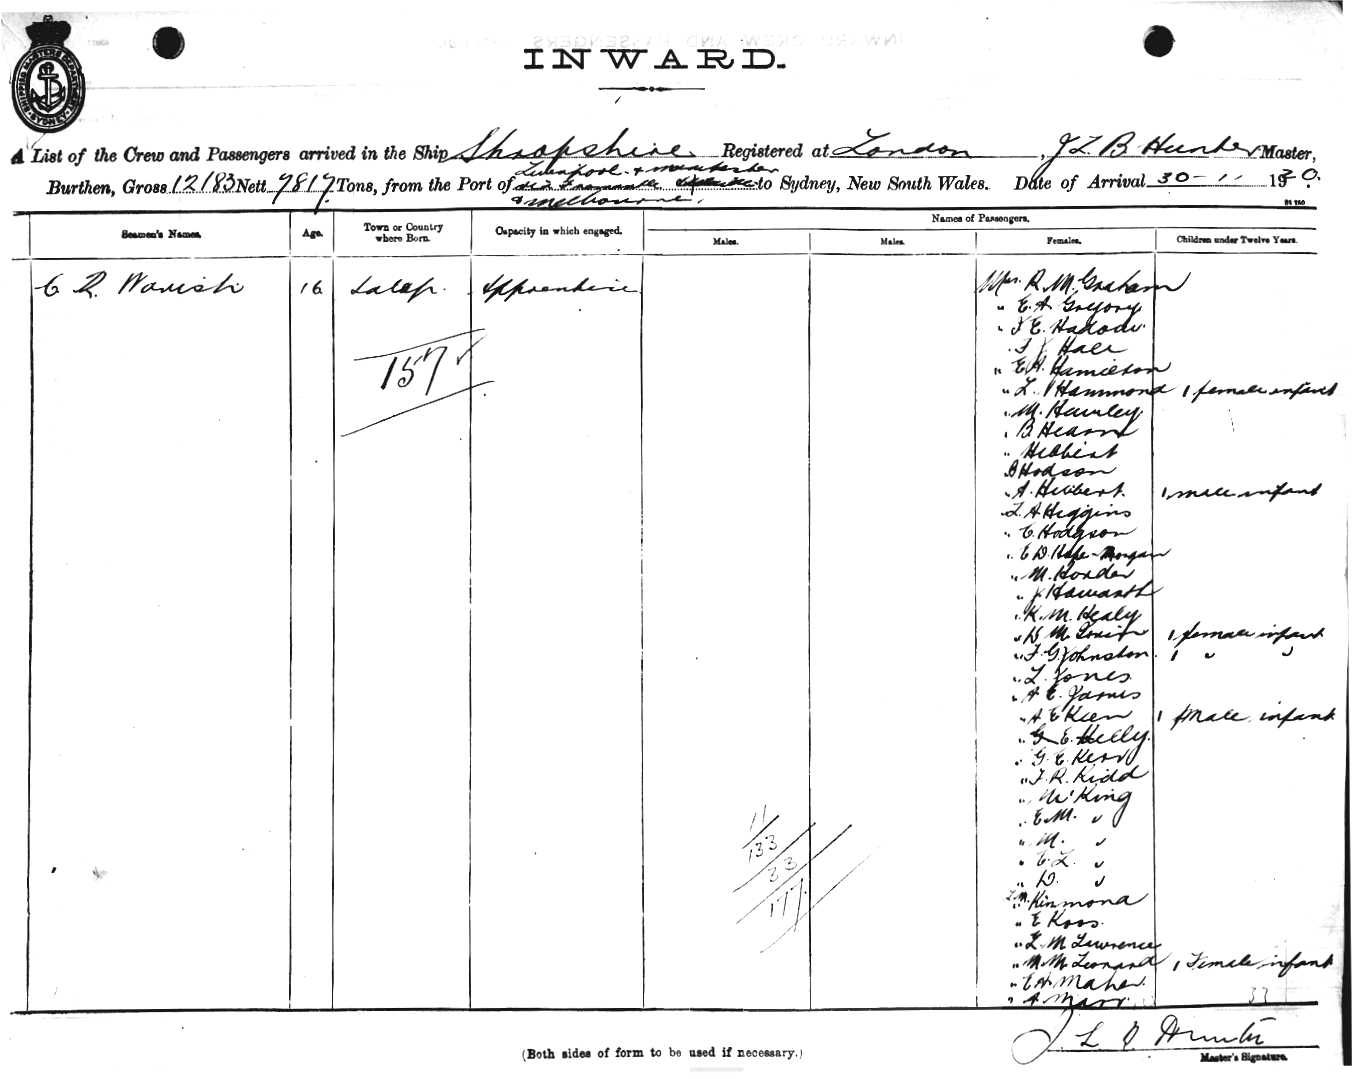 SHIPPING MASTERS DEPARTMENT SYDNEY
INWARD.
A List of the Crew and Passengers arrived in the Ship Shropshire Registered at London, J L B Hunter Master,
Liverpool + Manchester
Burthen, Gross 12183 Nett 7817 Tons, from the Port of to Sydney, New South Wales. Date of Arrival 30-11 1920.
& Melbourne.
Names of Passengers.
Seamen's Names. Age. Town or Country where Born. Capacity in which engaged. Males. Males. Females. Children under Twelve Years.
C R. Wavish 16 Apprentice Mrs. R. M. Graham
" E. A Gregory
" E. Hadow
Hall
" E A. Hamilton
" L. Hammond 1 female infant
" M. Hanley
" B Hearn
" Hebbert
B Hodson
" A. Hibbert. 1 male infant
L. A Higgins
" C. Hodgson
" E D. Hope-Morgan
" M. Horder
" J. Haworth
" K. M. Healy
" D M. 1 female infant
" F. G. Johnston. 1 " "
" L. Jones
" A E. James
" A E Keen 1 Male infant
" G E. Kelly.
" G. E. Kerr
" F. R. Kidd
" M. King
" E. M. "
" M. "
" C. L. "
" D. "
Kinmond
" E Koos.
" L M Lawrence
" M. M. Leonard 1 Female infant
" E A Maher
" A Marr.
157
11
133
33
177
33
J L B Hunter
Master's Signature.
(Both sides of form to be used if necessary.)